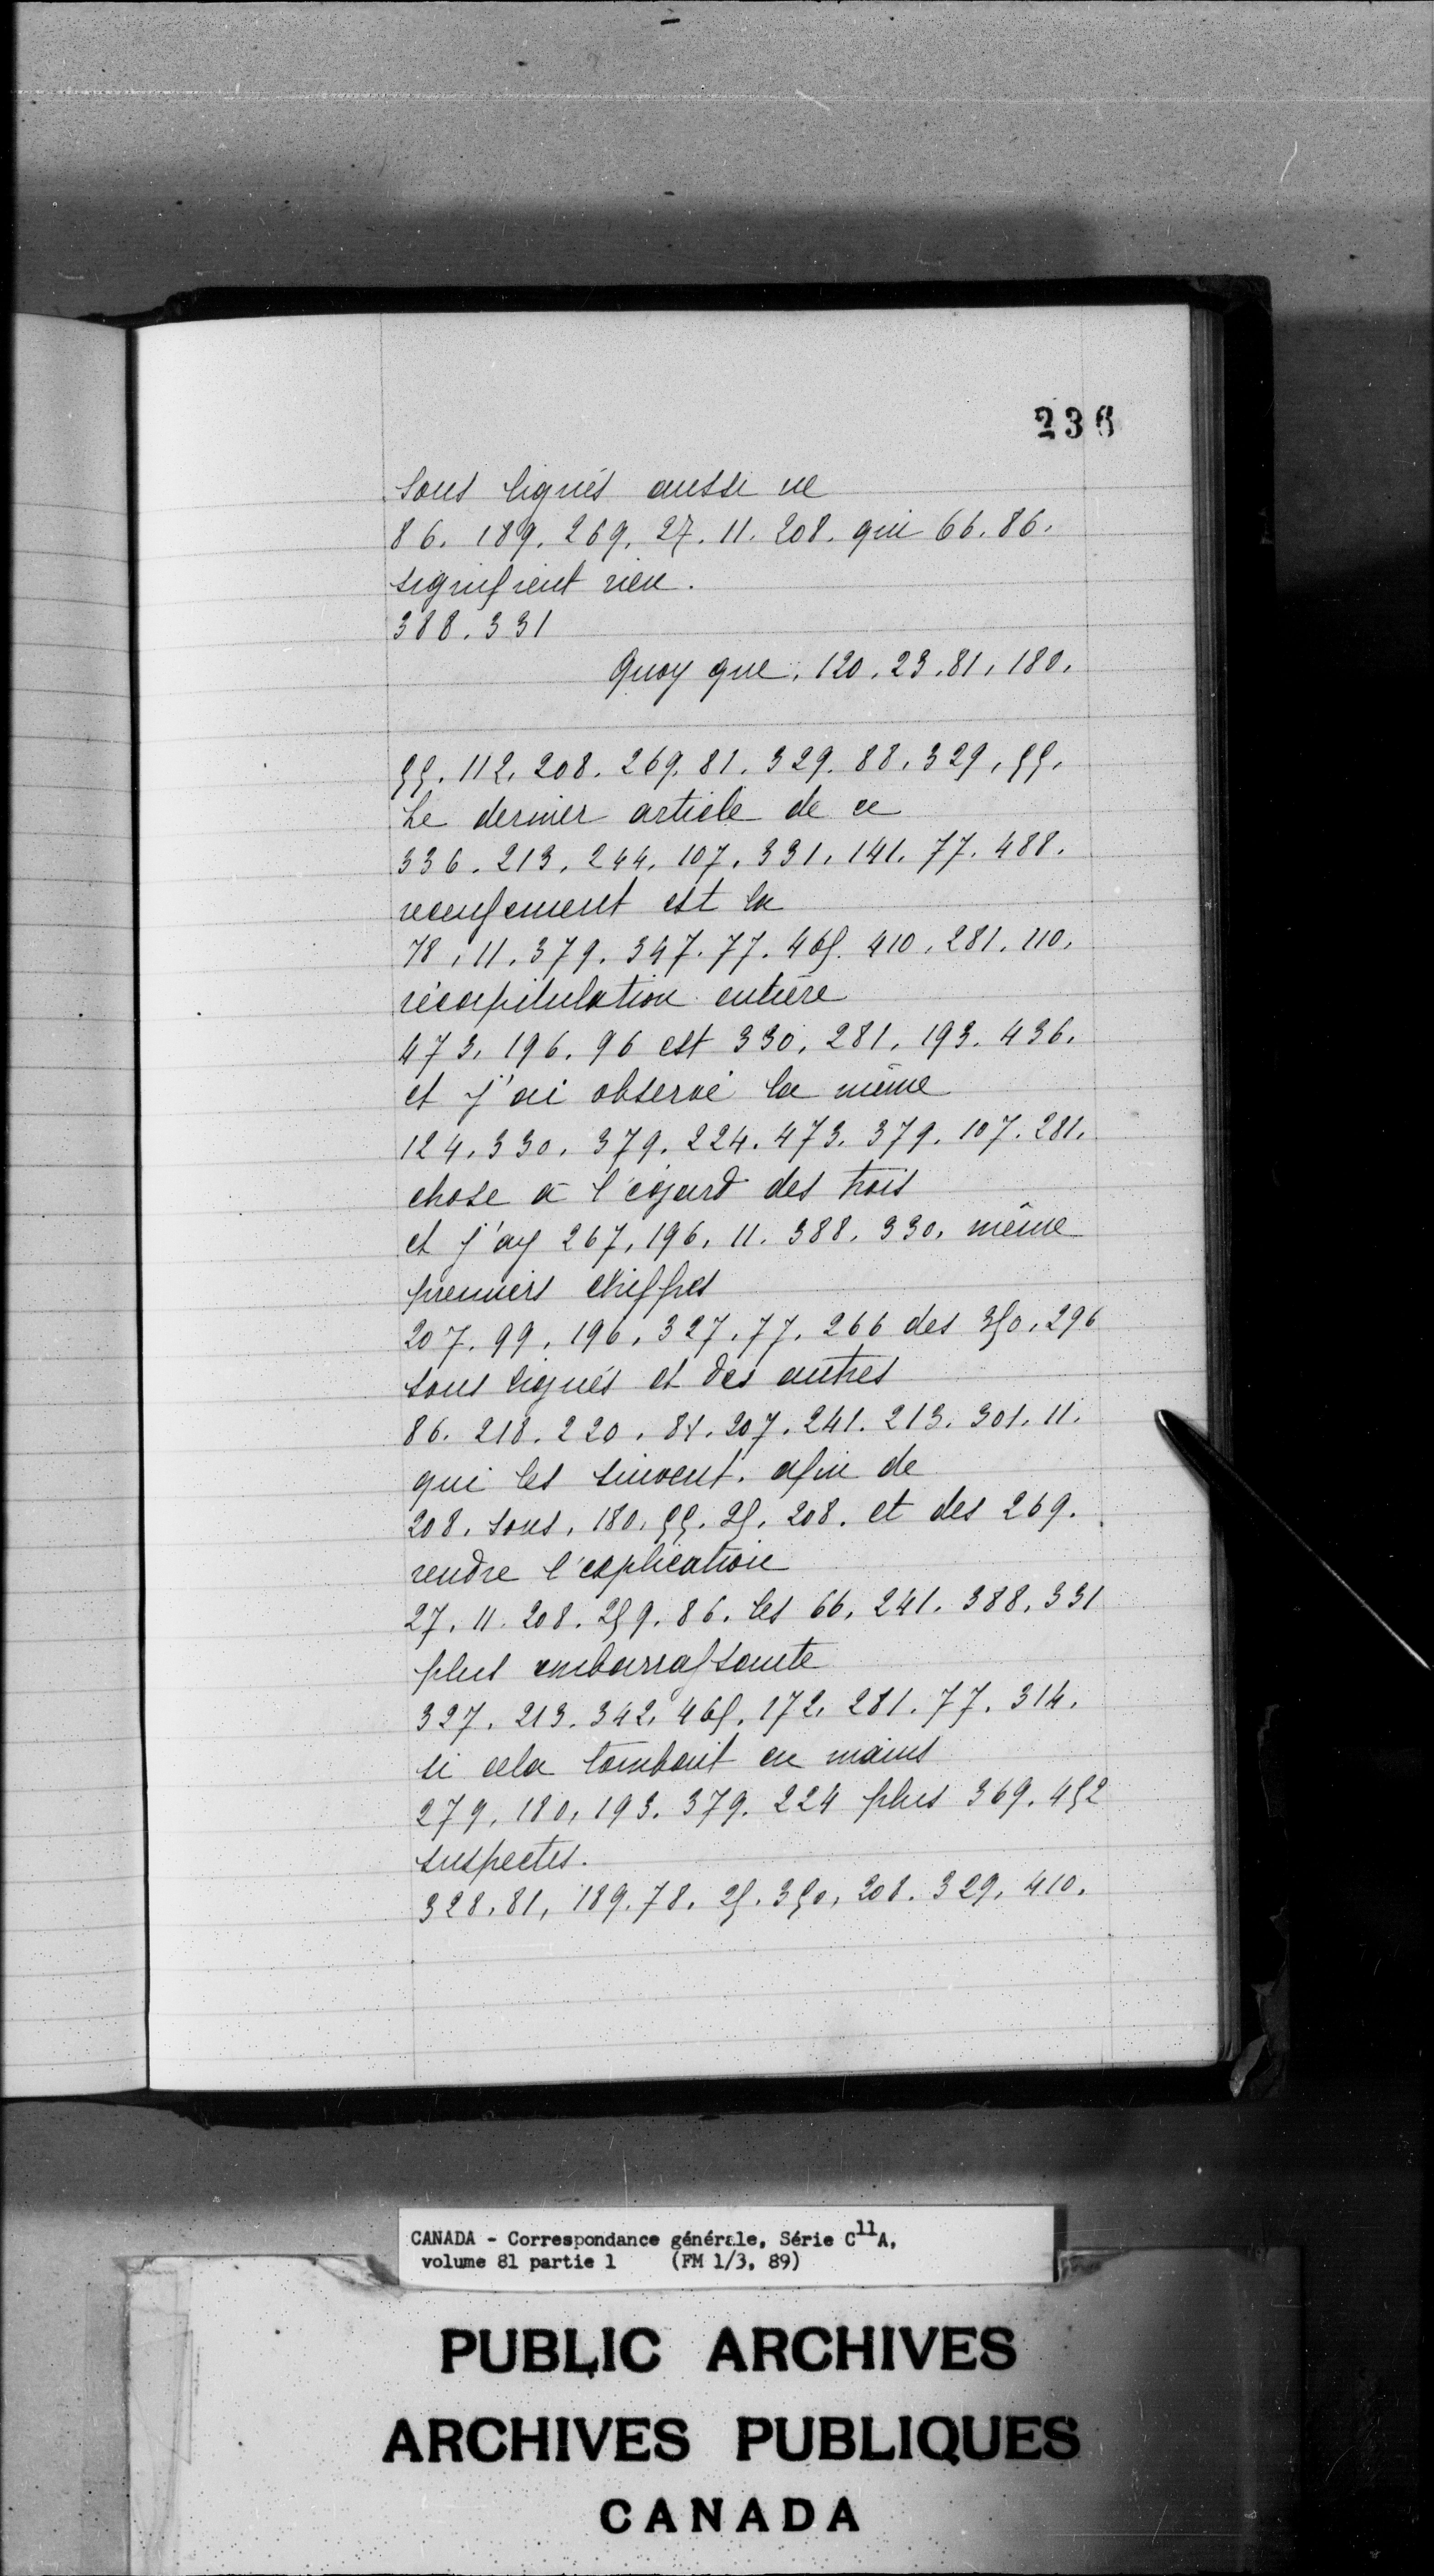 236
sous lignés aussi ne
86. 189. 269. 27. 11. 208. qui 66. 86.
signifient rien.
388. 331
Quoy que. 120. 23. 81. 180.
55. 112. 208. 269. 81. 329. 88. 329. 55.
Le dernier article de ce
336. 213. 244. 107. 331. 141. 77. 488.
recensement est la
78. 11. 379. 347. 77. 465. 410. 281. 110.
récapitulation entière
473. 196. 96 est 330. 281. 193. 436.
et j'ai observé la même
124. 330. 379. 224. 473. 379. 107. 281.
chose à l'égard des trois
et j'ay 267. 196. 11. 388. 330. même
premiers chiffres
207. 99. 196. 327. 77. 266 des 350. 296
sous lignés et des autres
86. 218. 220. 81. 207. 241. 213. 301. 11.
qui les suivent. afin de
208. sous. 180. 55. 25. 208. et des 269.
rendre l'explication
27. 11. 208. 259. 86. les 66. 241. 388. 331
plus embarassante
327. 213. 342. 465. 172. 281. 77. 314.
si cela tombait en mains
279. 180. 193. 379. 224 plus 369. 452
suspectes.
328. 81. 189. 78. 25. 350. 208. 329. 410.
CANADA - Correspondance générale, Série C11A,
volume 81 partie 1 (FM 1/3, 89)
PUBLIC ARCHIVES
ARCHIVES PUBLIQUES
CANADA